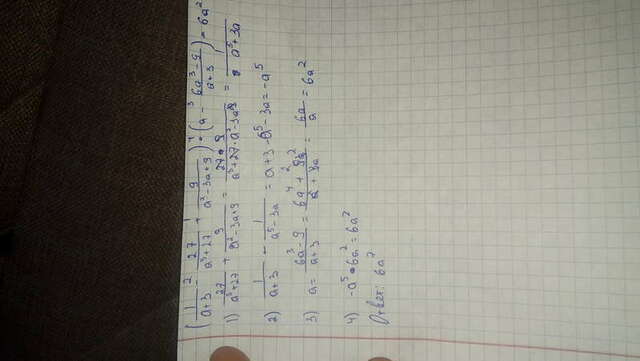 (1/(a+3) -² 27/(a³+27) +¹ 9/(a²-3a+9)) •⁴ (a -³ (6a³-9)/(a+3)) = 6a²
1) 27/(a³+27) + 9/(a²-3a+9) = (27•9)/(a³+27•a²-3a9) = 1/(a⁵+3a)
2) 1/(a+3) - 1/(a⁵-3a) = a+3-a⁵-3a = -a⁵
3) a = (6a³-9)/(a+3) = (6a⁴+9a²)/(a²+3a) = 6a/a = 6a²
4) -a⁵•6a² = 6a²
Ответ: 6a²